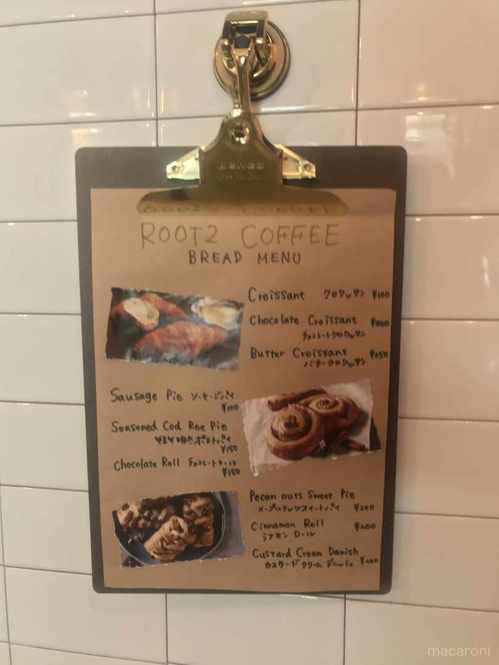 ROOT2 COFFEE
BREAD MENU
Croissant クロワッサン ¥100
Chocolate Croissant
チョコレートクロワッサン
Butter Croissant ¥150
バタークロワッサン
Sausage Pie ソーセージパイ
Seasoned Cod Roe Pie
¥150
Chocolate Roll チョコレートロール
¥150
Pecan nuts Sweet Pie
メープルナッツスイートパイ ¥200
Cinnamon Roll ¥200
シナモンロール
Custard Cream Danish
カスタードクリームデニッシュ
macaroni